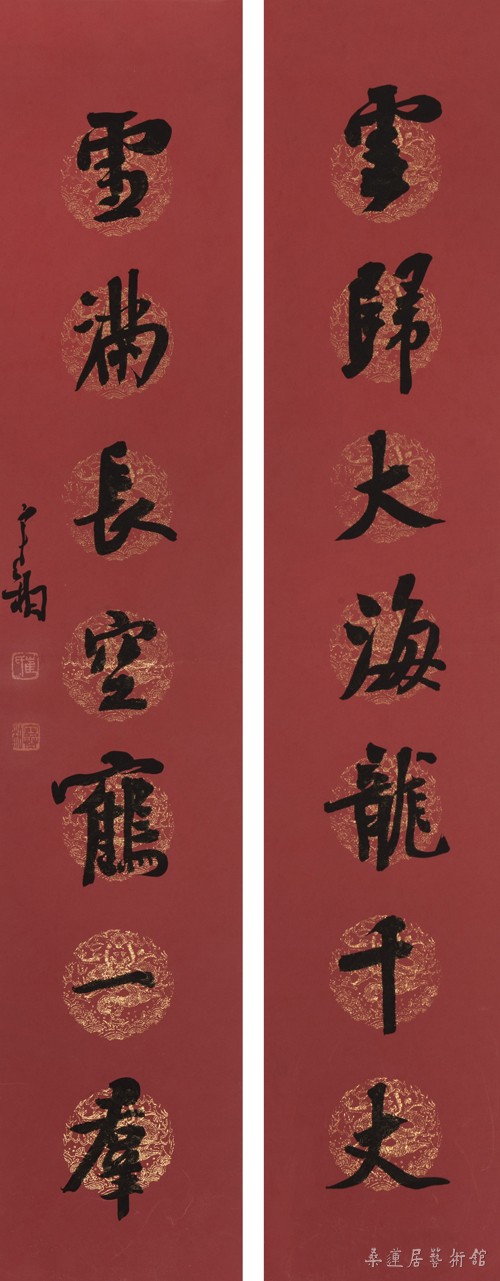 雲歸大海龍千丈
雪滿長空鶴一羣
桑蓮居藝術館